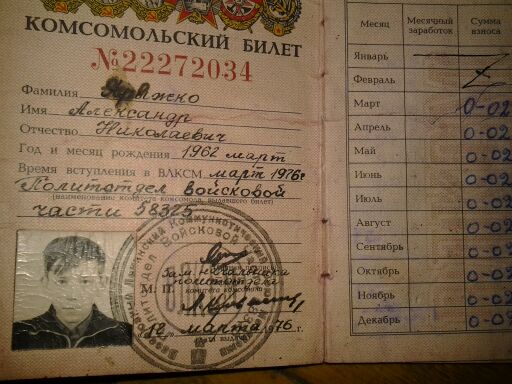 КОМСОМОЛЬСКИЙ БИЛЕТ
№22272034
Фамилия
Имя Александр
Отчество Николаевич
Год и месяц рождения 1962 март
Время вступления в ВЛКСМ март 1976г
Политотдел войсковой
(наименование комитета комсомола, выдавшего билет)
части 58325
Зам. начальника
политотдела
М. П.
комитета комсомола
12 марта 1976 г.
Месяц Месячный заработок Сумма взноса
Январь
Февраль
Март 0-02
Апрель 0-02
Май 0-02
Июнь 0-02
Июль 0-02
Август 0-02
Сентябрь 0-02
Октябрь 0-02
Ноябрь 0-02
Декабрь 0-02